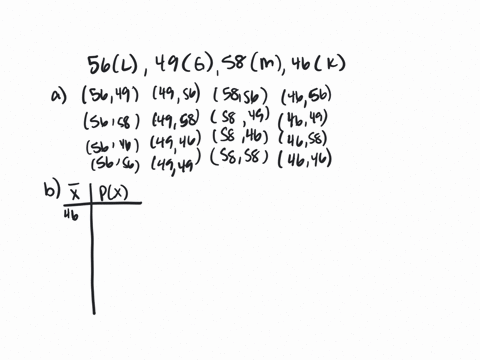 56(L), 49(G), 58(M), 46(K)
a) (56,49) (49,56) (58,56) (46,56)
(56,58) (49,58) (58,49) (46,49)
(56,46) (49,46) (58,46) (46,58)
(56,56) (49,49) (58,58) (46,46)
b) x̄ P(x)
46